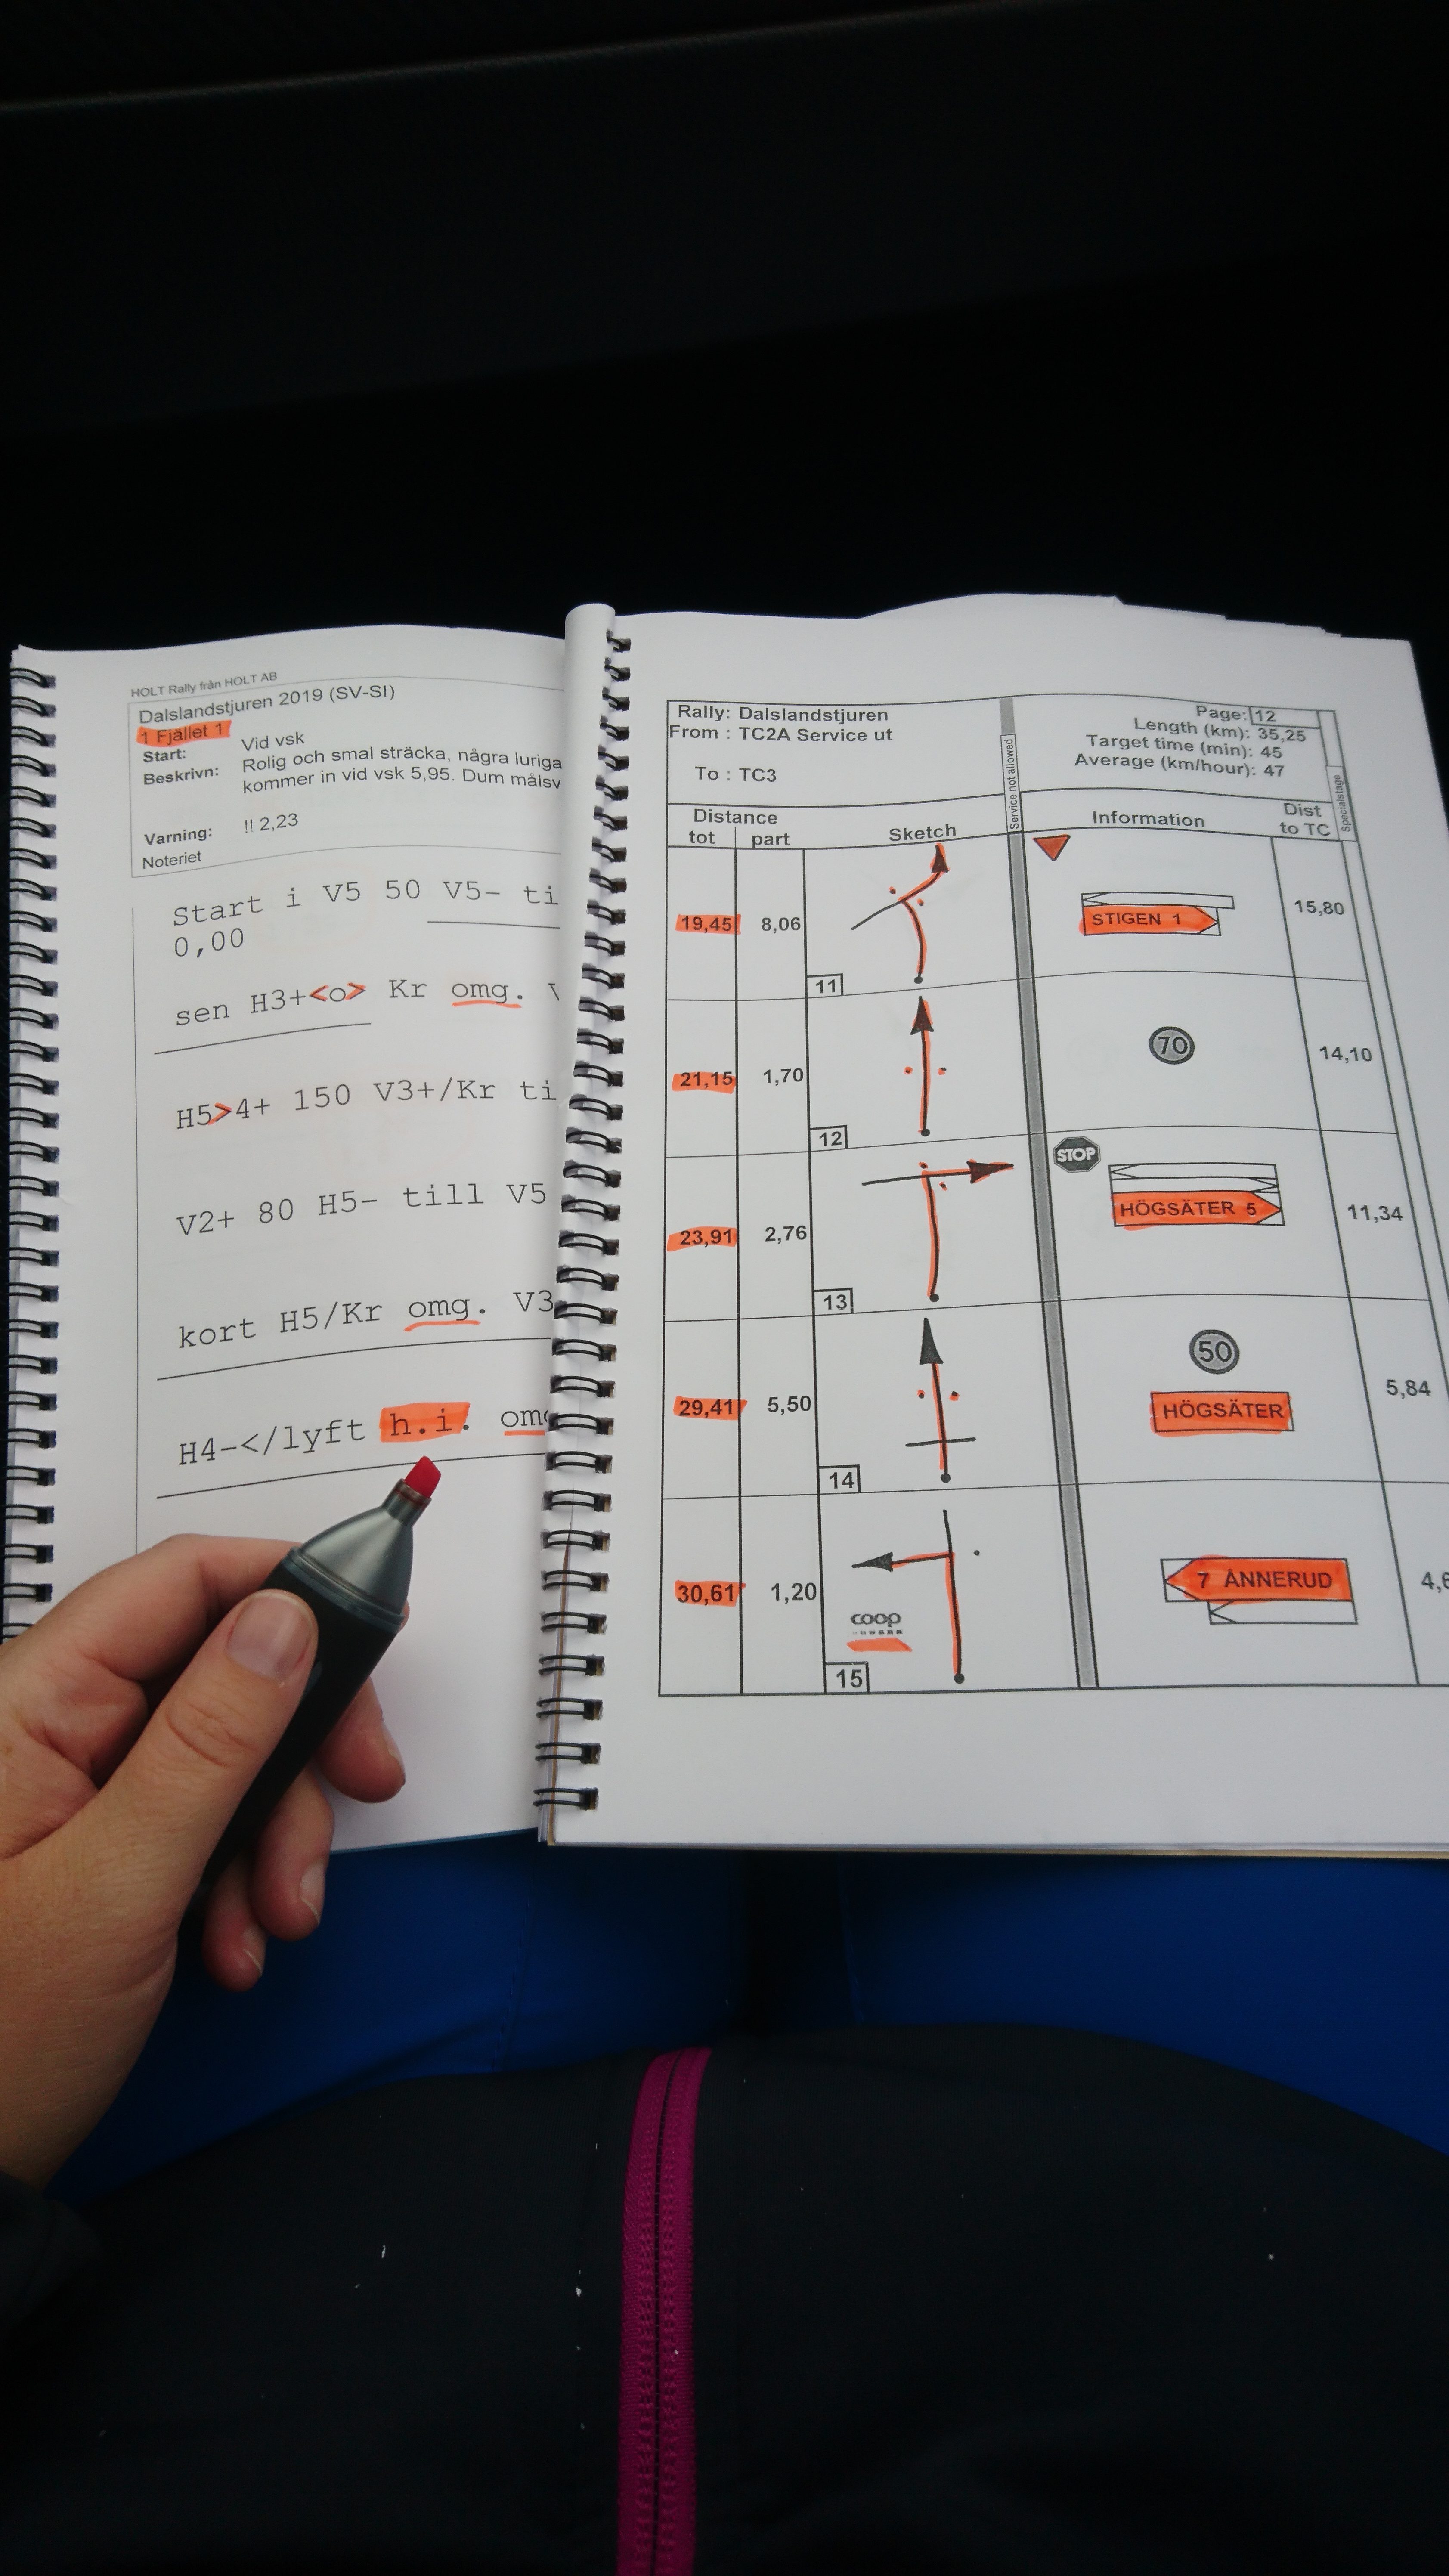 HOLT Rally från HOLT AB
Dalslandstjuren 2019 (SV-SI)
1 Fjället 1
Start: Vid vsk
Beskrivn: Rolig och smal sträcka, några luriga
kommer in vid vsk 5,95. Dum målsv
Varning: !! 2,23
Noteriet
Start i V5 50 V5- ti
0,00
sen H3+<o> Kr omg.
H5>4+ 150 V3+/Kr ti
V2+ 80 H5- till V5
kort H5/Kr omg. V3
H4-</lyft h.i. om
Rally: Dalslandstjuren
From : TC2A Service ut
To : TC3
Page: 12
Length (km): 35,25
Target time (min): 45
Average (km/hour): 47
Service not allowed
Specialstage
Distance
tot part Sketch Information Dist to TC
19,45 8,06 11 STIGEN 1 15,80
21,15 1,70 12 70 14,10
23,91 2,76 13 STOP HÖGSÄTER 5 11,34
29,41 5,50 14 50 HÖGSÄTER 5,84
30,61 1,20 15 coop 7 ÄNNERUD 4,6